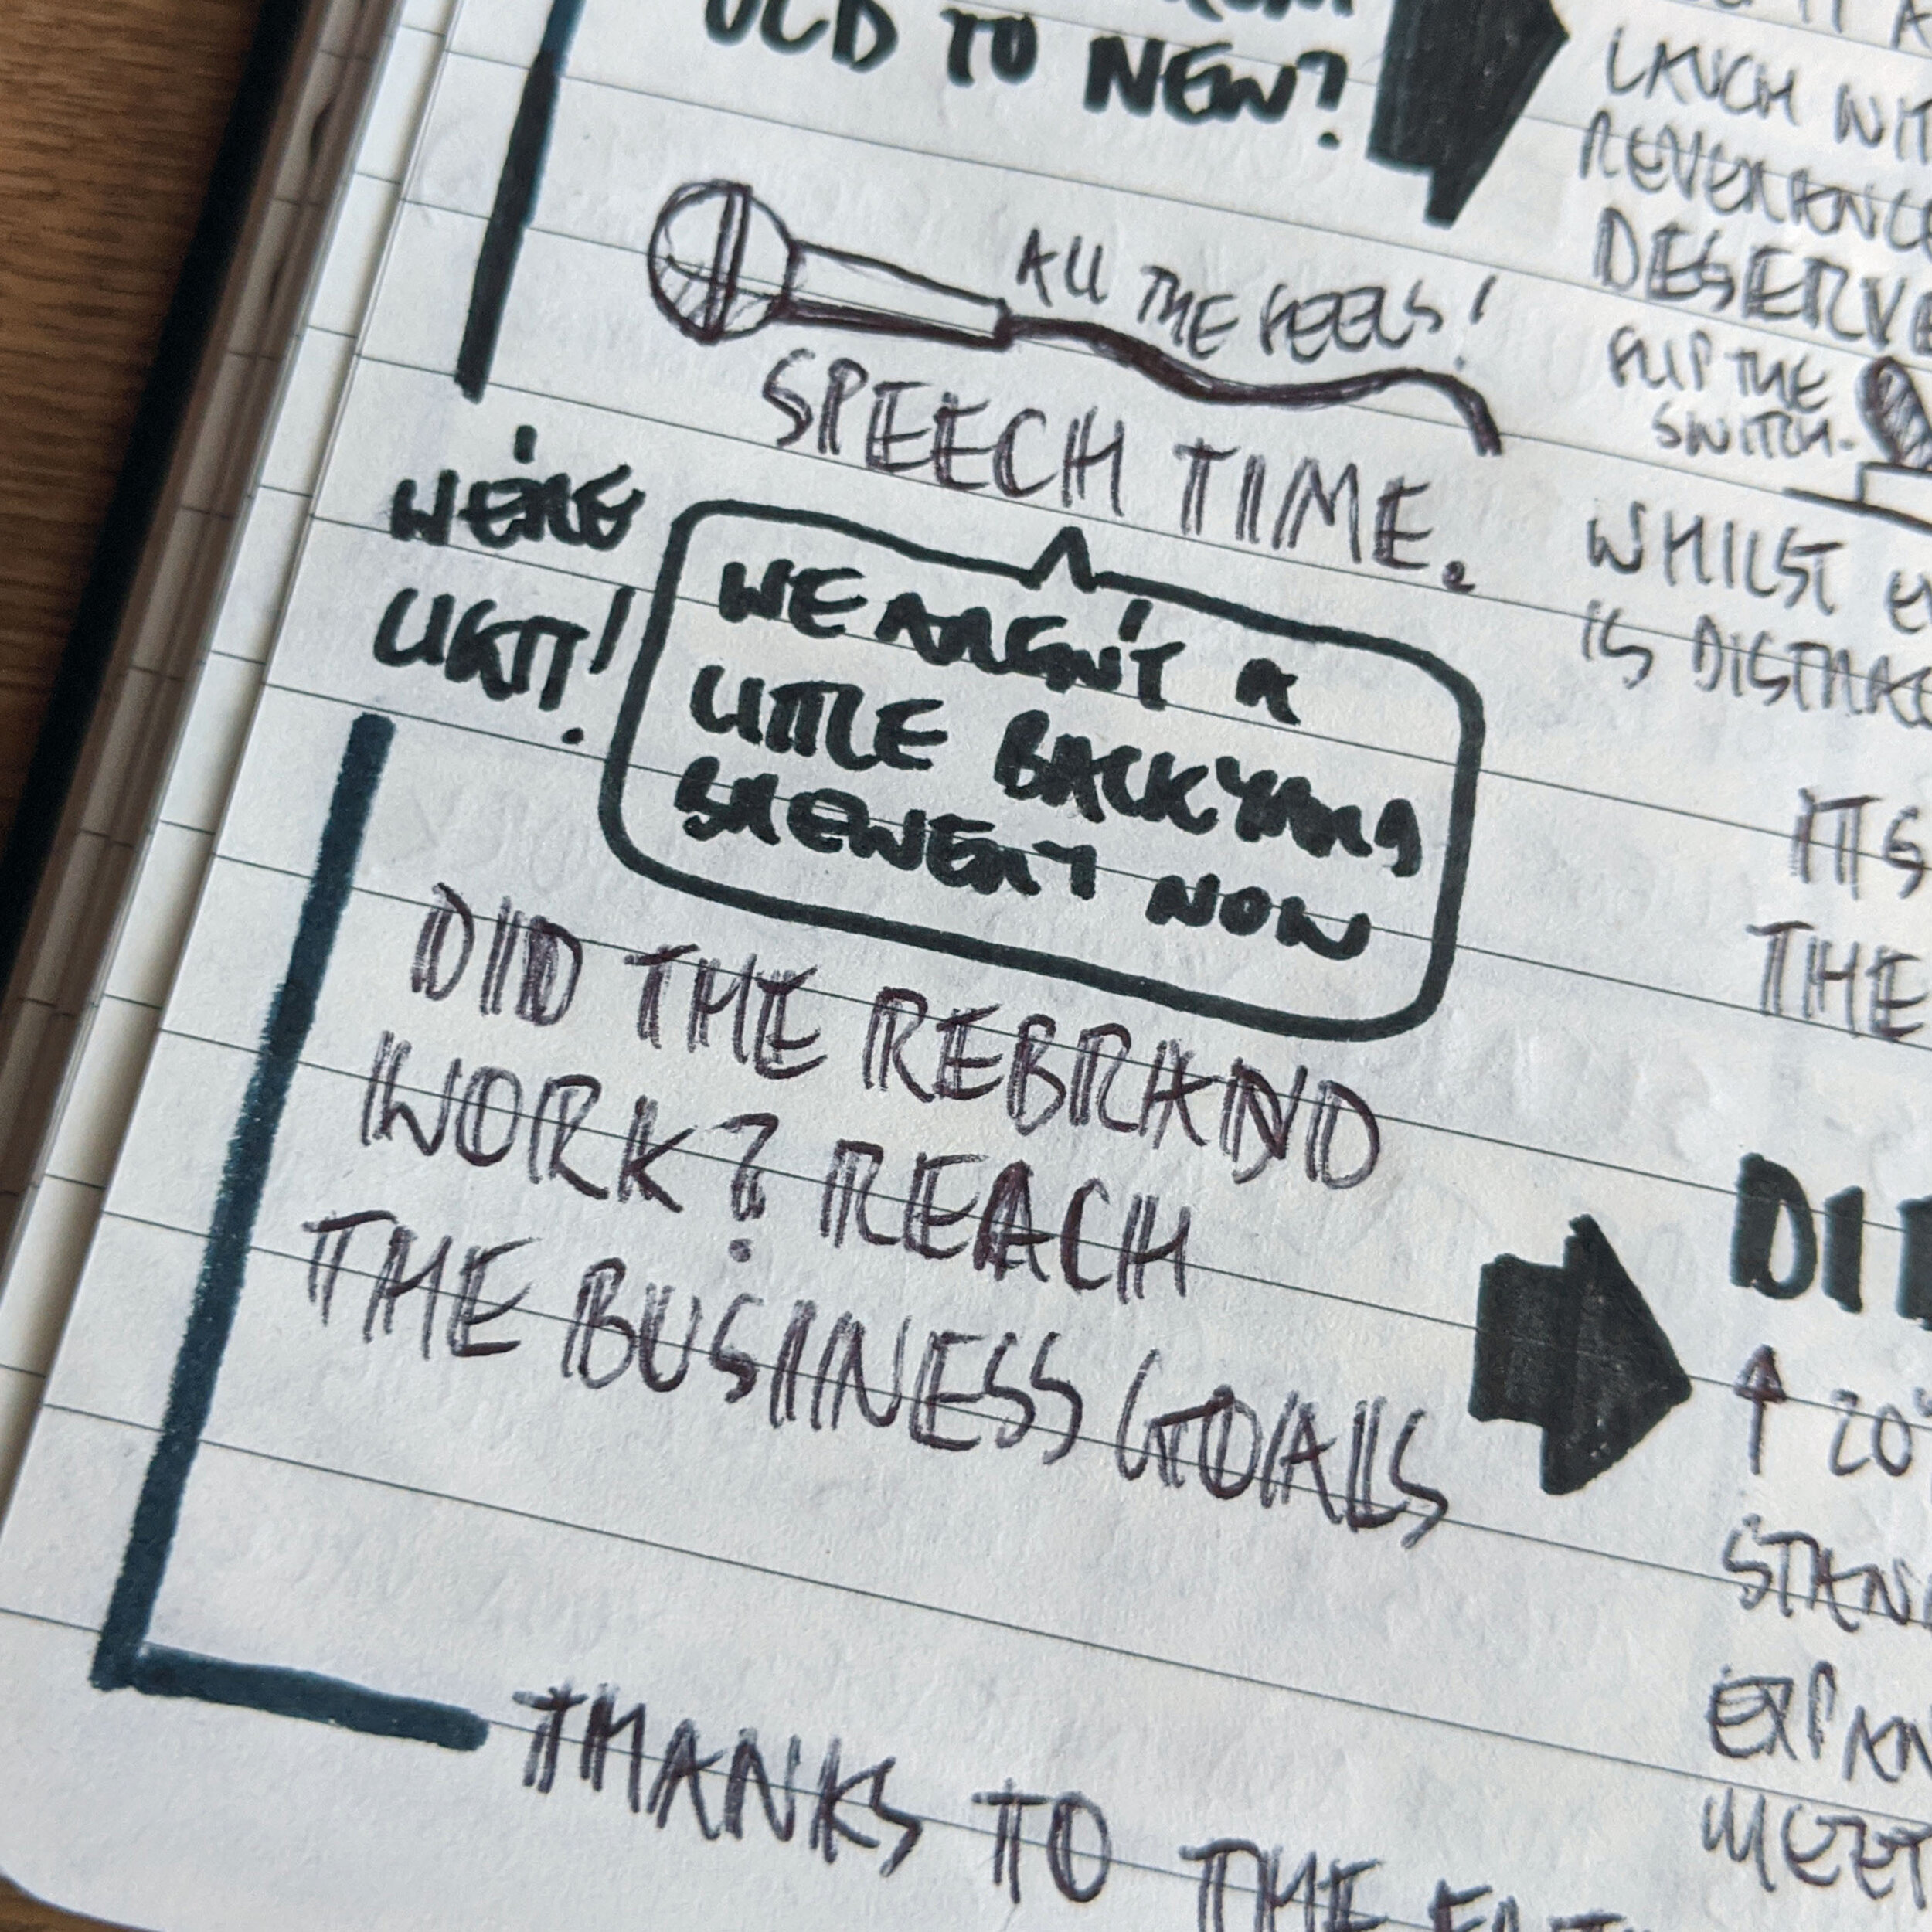 OLD TO NEW?
ALL THE FEELS!
SPEECH TIME.
WE'RE
LEGIT!
WE AREN'T A
LITTLE BACKYARD
BREWERY NOW
DID THE REBRAND
WORK? REACH
THE BUSINESS GOALS
THANKS TO THE
REVERENCE
DESERVE
FLIP THE
SWITCH.
WHILST
IS
ITS
THE
20